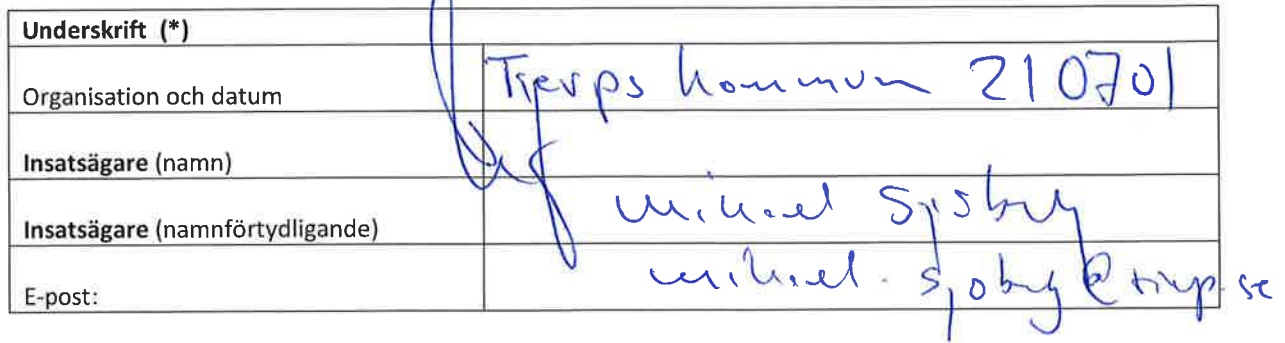 Underskrift (*)
Organisation och datum Tierps kommun 210701
Insatsägare (namn)
Insatsägare (namnförtydligande) Mikael Sjöberg
E-post: mikael.sjoberg@tierp.se